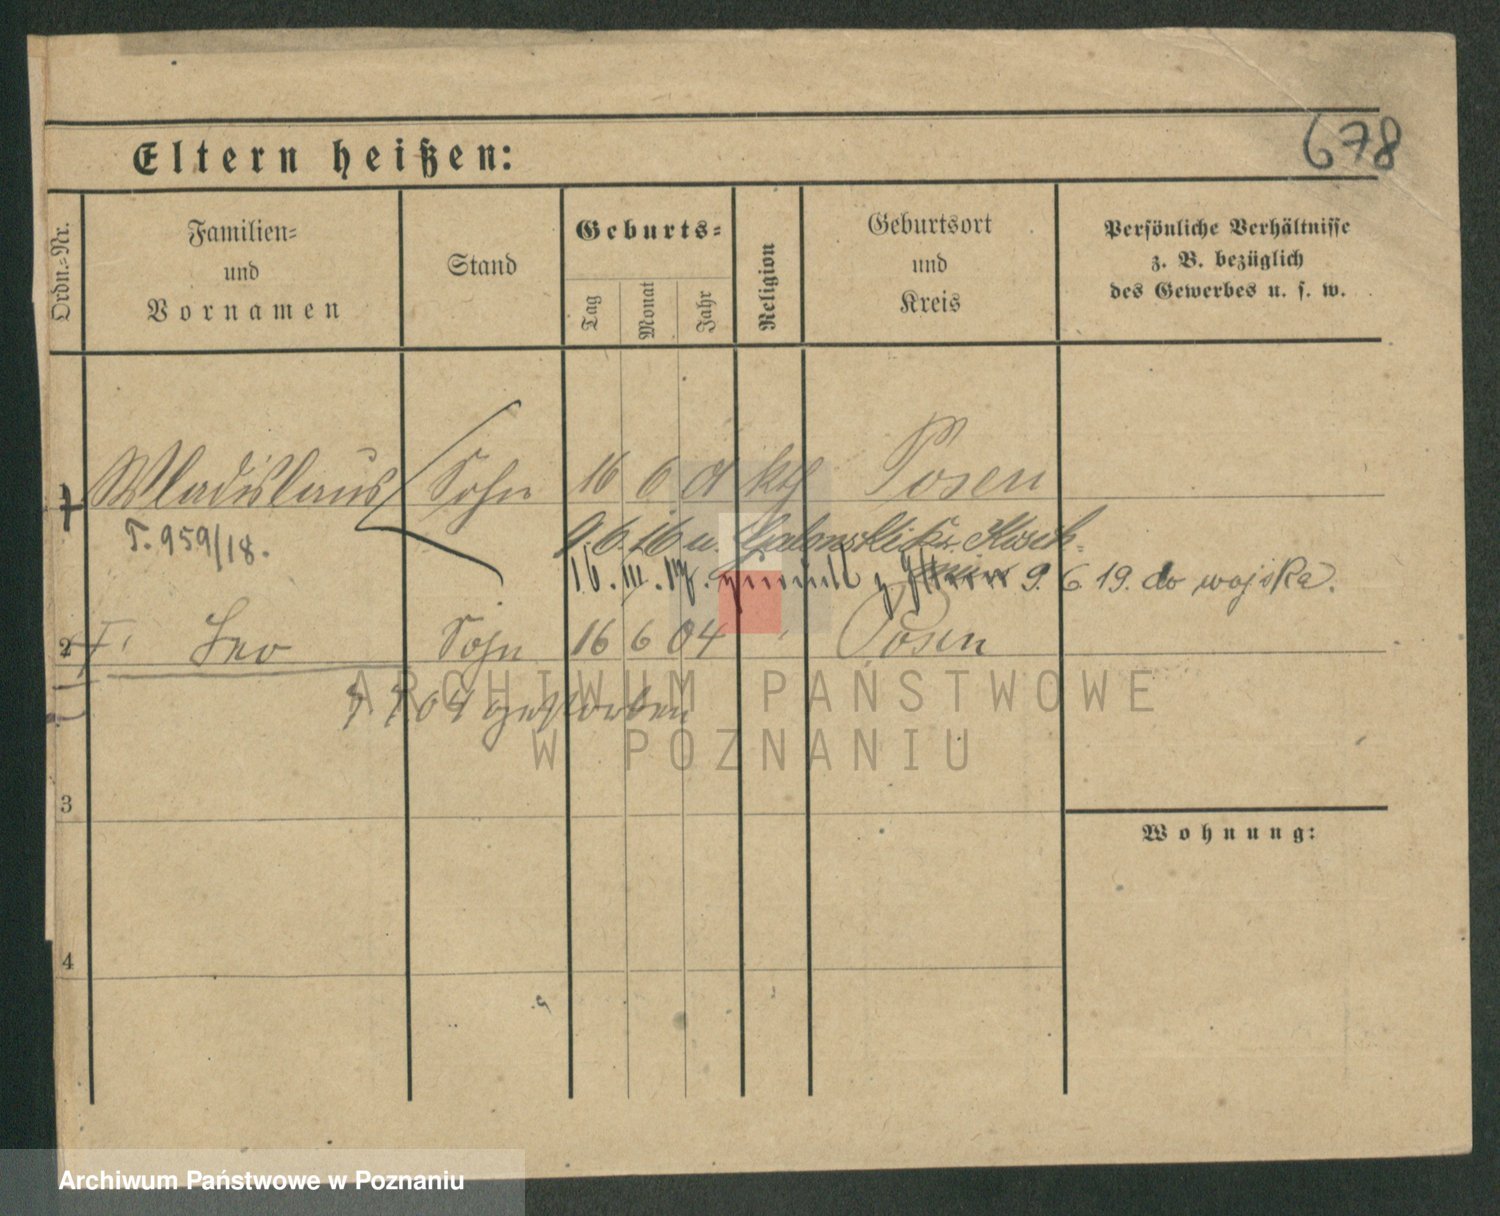 678
Eltern heißen:
Ordn.-Nr.
Familien-
und
Vornamen
Stand
Geburts-
Tag
Monat
Jahr
Religion
Geburtsort
und
Kreis
Persönliche Verhältnisse
z. B. bezüglich
des Gewerbes u. s. w.
1 Wladislaus Sohn 16 6 01 kth Posen
T. 959/18.
9. 6. 16 u.
16. III. 17. 9. 6. 19. do wojska.
2 Leo Sohn 16 6 04 " Posen
04 gestorben
3
Wohnung:
4
ARCHIWUM PAŃSTWOWE
W POZNANIU
Archiwum Państwowe w Poznaniu